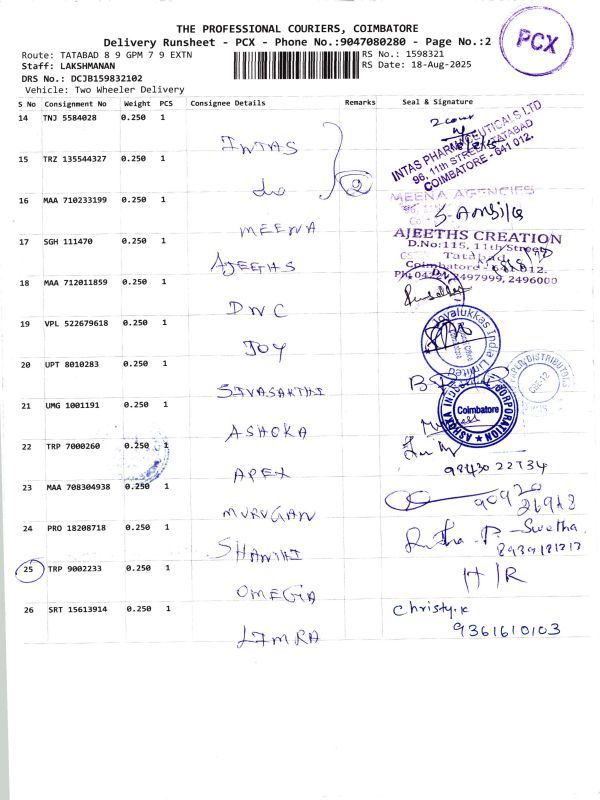 THE PROFESSIONAL COURIERS, COIMBATORE
Delivery Runsheet - PCX - Phone No.:9047080280 - Page No.:2
PCX
Route: TATABAD 8 9 GPM 7 9 EXTN
RS No.: 1598321
Staff: LAKSHMANAN
RS Date: 18-Aug-2025
DRS No.: DCJB159832102
Vehicle: Two Wheeler Delivery
S No Consignment No Weight PCS Consignee Details Remarks Seal & Signature
14 TNJ 5584028 0.250 1
INTAS
INTAS PHARMACEUTICALS LTD
96, 11th STREET, TATABAD
COIMBATORE - 641 012.
15 TRZ 135544327 0.250 1
do
16 MAA 710233199 0.250 1
MEENA AGENCIES
MEENA
17 SGH 111470 0.250 1
AJEETHS CREATION
D.No:115, 11th Street
Tatabad
Coimbatore - 641 012.
2497999, 2496000
AJEETHS
18 MAA 712011859 0.250 1
DNC
19 VPL 522679618 0.250 1
Joyalukkas India Limited
JOY
20 UPT 8010283 0.250 1
SIVASAKTHI
21 UMG 1001191 0.250 1
Coimbatore
ASHOKA
22 TRP 7000260 0.250 1
9843022734
APEX
23 MAA 708304938 0.250 1
90920
26918
MURUGAN
24 PRO 18208718 0.250 1
Swetha
SHANTHI
25 TRP 9002233 0.250 1
H R
OMEGIA
26 SRT 15613914 0.250 1
Christy.K
9361610103
LIMRA